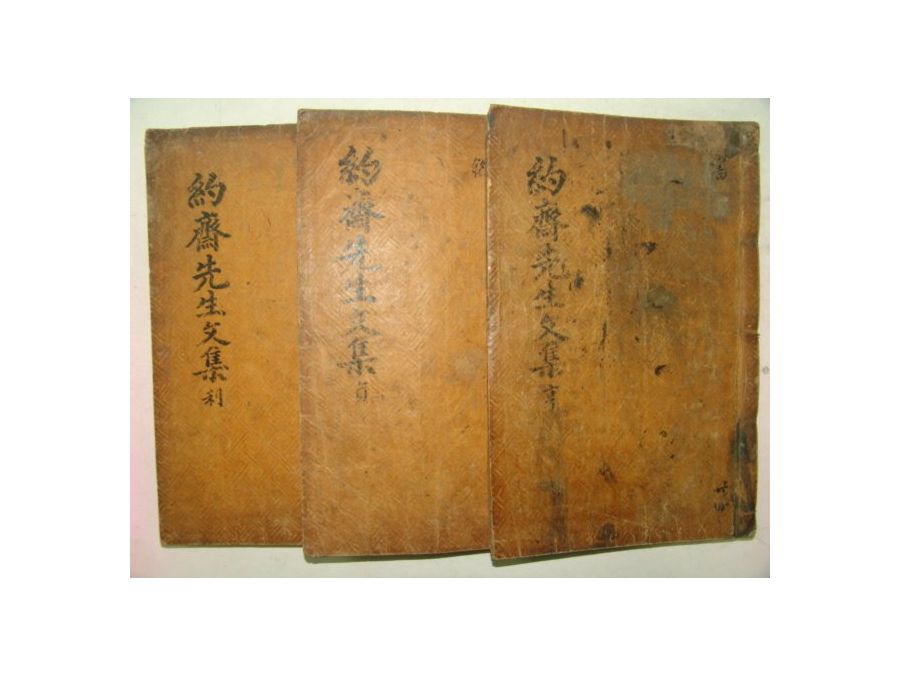 約齋先生文集 亨
約齋先生文集 貞
約齋先生文集 利